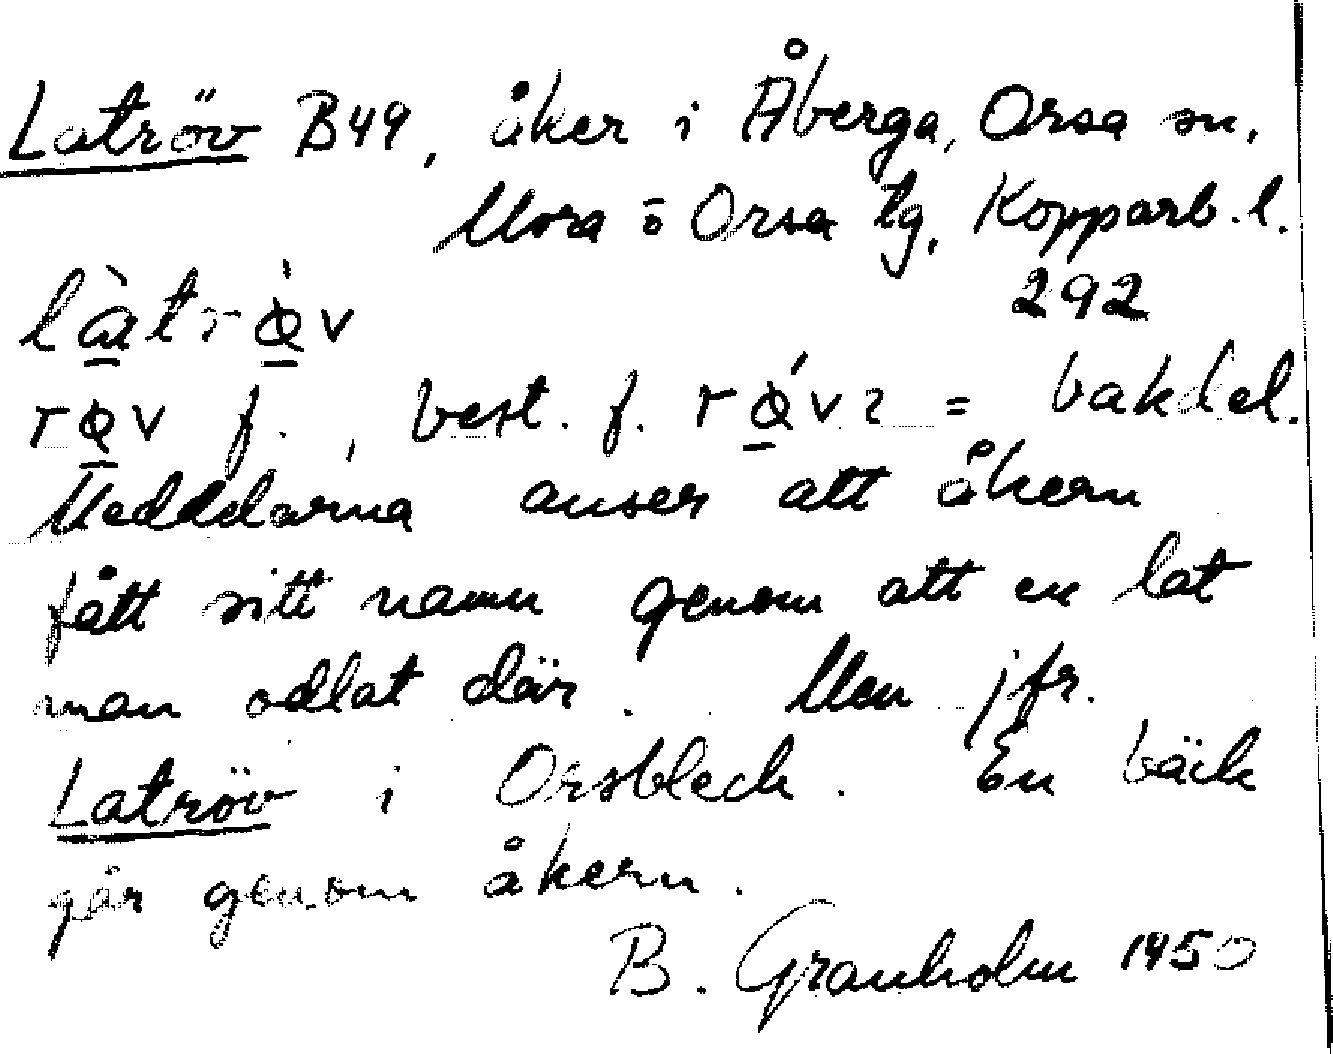 Latröv B49, åker i Åberga, Orsa sn,
Mora o Orsa tg, Kopparb. l.
292
làtrø̀v
røv f., best. f. rǿvɩ = bakdel.
Meddelarna anser att åkern
fått sitt namn genom att en lat
man odlat där. Men jfr.
Latröv i Orsbleck. En bäck
går genom åkern.
B. Granholm 1950